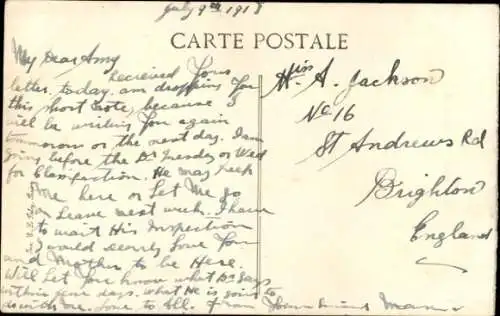 July 9th 1918
CARTE POSTALE
My Dear Amy
Recieved Your
letter today. am dropping You
this short note, because I
will be writing You again
tomorrow or the next day. I am
going before the Dr Tuesday or Wed
for Classification. He may keep
me here or Let Me go
on Leave next week. I have
to wait His Inspection
I would dearly Love You
and Mother to be Here.
Will Let You know what Dr Says
within few days. What He is going to
do with me. Love to All. From Your
Miss A. Jackson
No 16
St Andrews Rd
Brighton
England